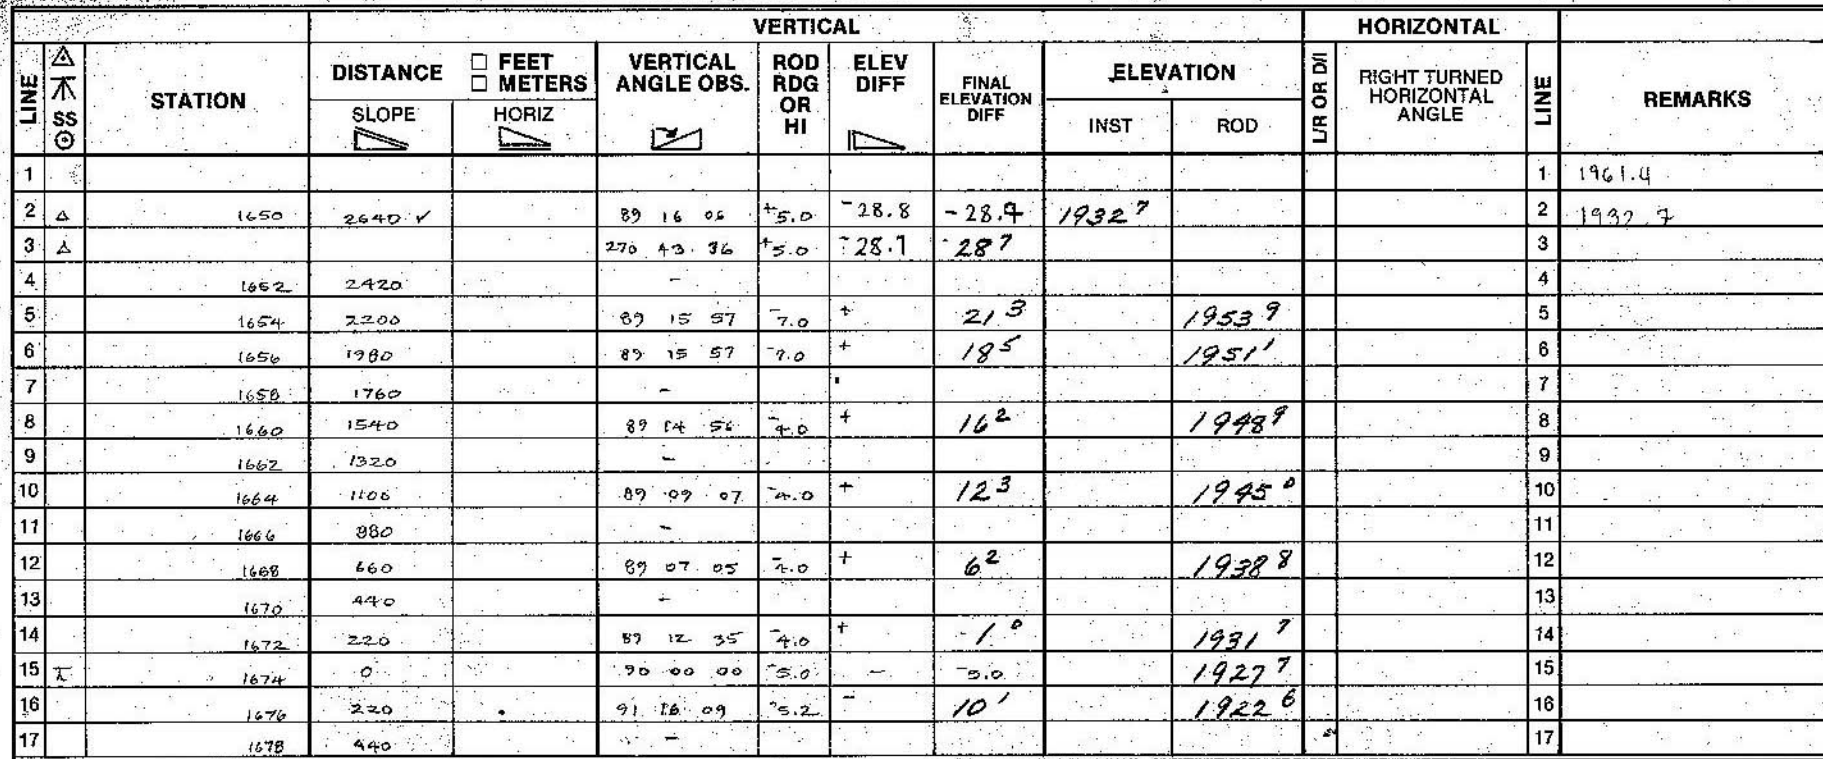 VERTICAL HORIZONTAL
LINE SS STATION DISTANCE □ FEET □ METERS SLOPE HORIZ VERTICAL ANGLE OBS. ROD RDG OR HI ELEV DIFF FINAL ELEVATION DIFF ELEVATION INST ROD L/R OR D/I RIGHT TURNED HORIZONTAL ANGLE LINE REMARKS
1 1 1961.4
2 △ 1650 2640 ✓ 89 16 06 +5.0 -28.8 -28.7 1932 7 2 1932.7
3 △ 270 43 36 +5.0 -28.7 -28 7 3
4 1652 2420 - 4
5 1654 2200 89 15 57 -7.0 + 21 3 1953 9 5
6 1656 1980 89 15 57 -7.0 + 18 5 1951 1 6
7 1658 1760 - 7
8 1660 1540 89 14 56 -4.0 + 16 2 1948 9 8
9 1662 1320 - 9
10 1664 1100 89 09 07 -4.0 + 12 3 1945 0 10
11 1666 880 - 11
12 1668 660 89 07 05 -4.0 + 6 2 1938 8 12
13 1670 440 - 13
14 1672 220 89 12 35 -4.0 + -1 0 1931 7 14
15 1674 0 90 00 00 -5.0 - -5.0 1927 7 15
16 1676 220 91 16 09 -5.2 - 10 1 1922 6 16
17 1678 440 - 17